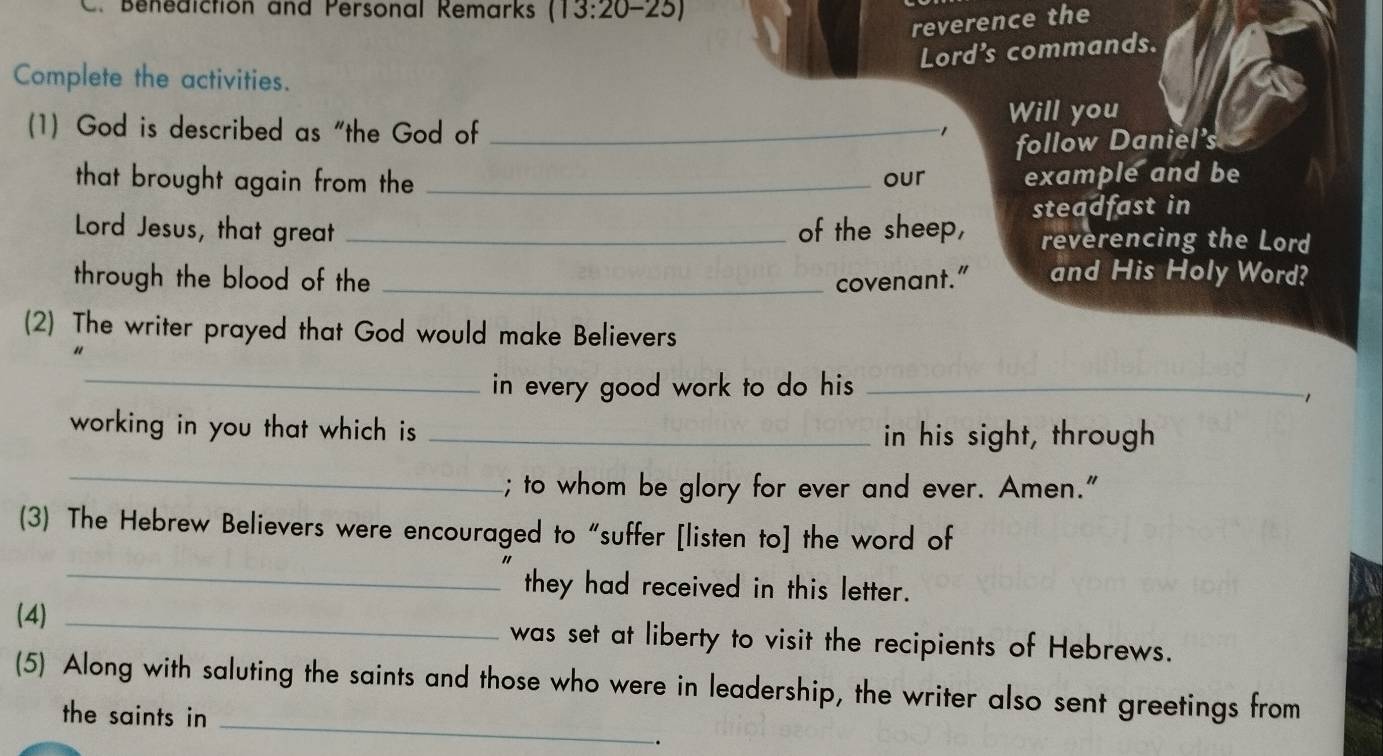 C. Benediction and Personal Remarks (13:20–25)
reverence the
Lord's commands.
Will you
follow Daniel's
example and be
steadfast in
reverencing the Lord
and His Holy Word?
Complete the activities.
(1) God is described as "the God of ________,
that brought again from the ________ our
Lord Jesus, that great ________ of the sheep,
through the blood of the ________ covenant."
(2) The writer prayed that God would make Believers
"________ in every good work to do his ________,
working in you that which is ________ in his sight, through
________; to whom be glory for ever and ever. Amen."
(3) The Hebrew Believers were encouraged to "suffer [listen to] the word of
________" they had received in this letter.
(4) ________ was set at liberty to visit the recipients of Hebrews.
(5) Along with saluting the saints and those who were in leadership, the writer also sent greetings from
the saints in ________.